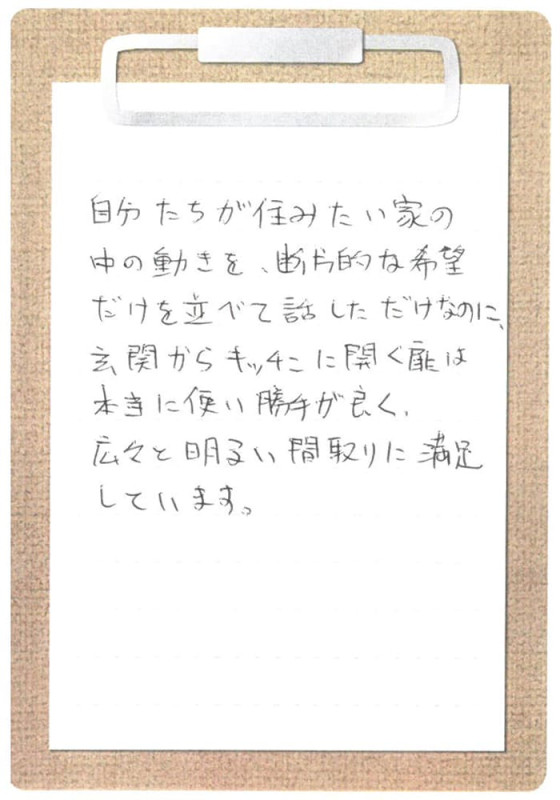 自分たちが住みたい家の
中の動きを、断片的な希望
だけを並べて話しただけなのに、
玄関からキッチンに開く扉は
本当に使い勝手が良く、
広々と明るい間取りに満足
しています。